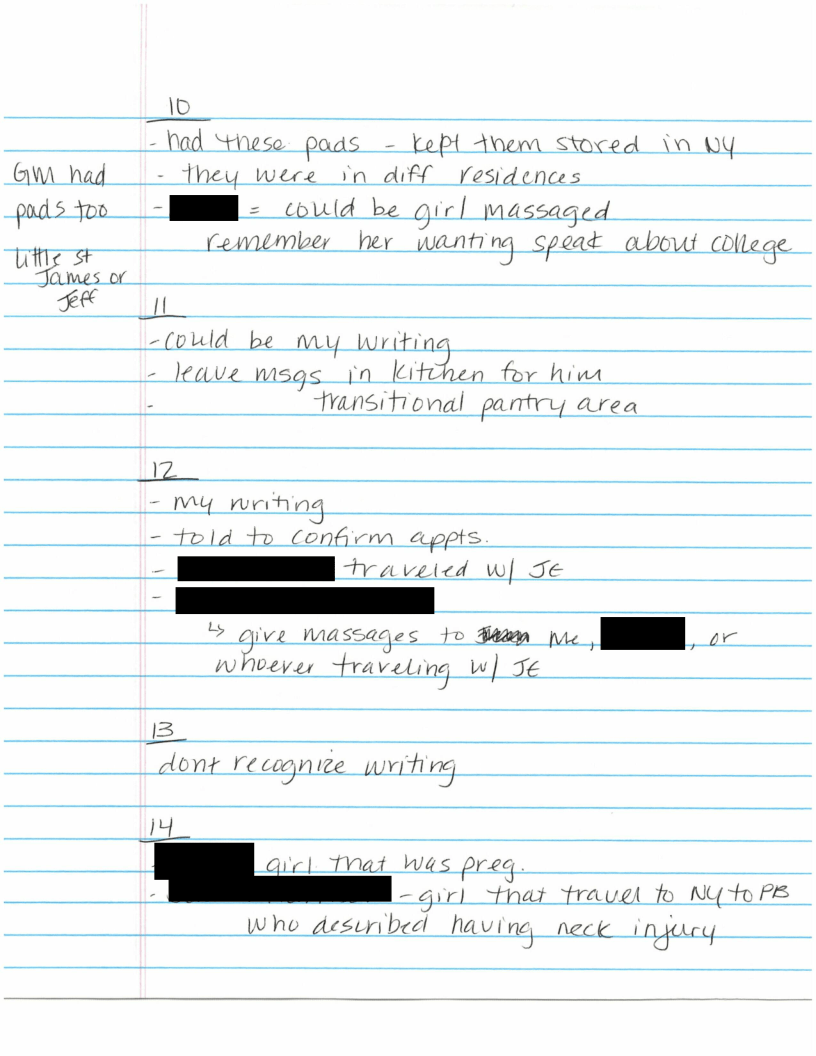 10
- had these pads - kept them stored in NY
GM had
- they were in diff residences
pads too
- = could be girl massaged
remember her wanting speak about college
Little St
James or
Jeff
11
- could be my writing
- leave msgs in kitchen for him
- transitional pantry area
12
- my writing
- told to confirm appts.
- traveled w/ JE
-
↳ give massages to me, , or
whoever traveling w/ JE
13
dont recognize writing
14
- girl that was preg.
- - girl that travel to NY to PB
who described having neck injury